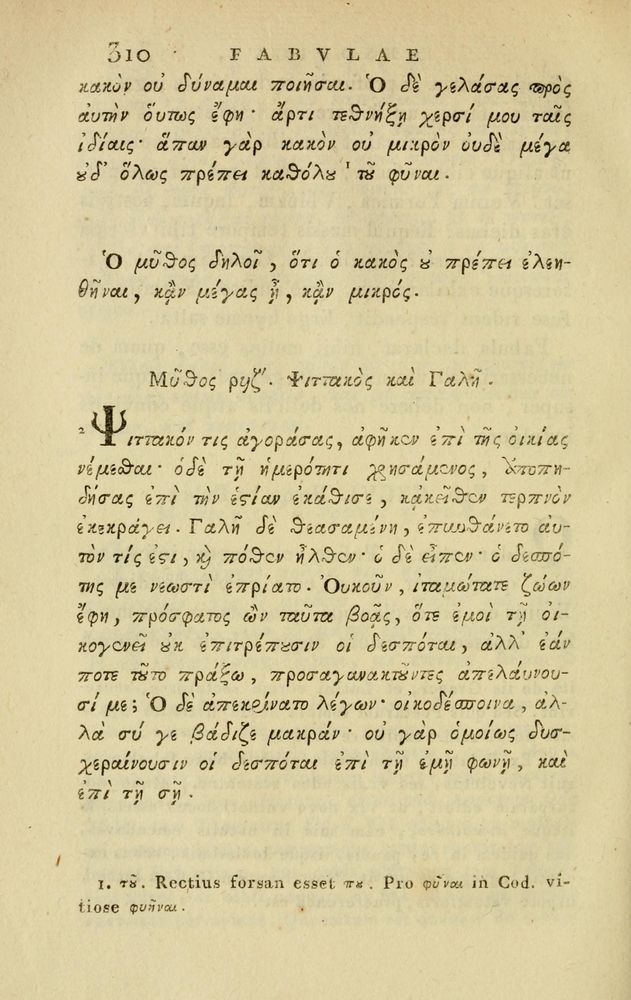 310 FABVLAE
κακὸν οὐ δύναμαι ποιῆσαι. Ὁ δὲ γελάσας πρὸς
αυτὴν ὅυτως ἔφη· ἄρτι τεθνήξῃ χερσί μου ταῖς
ἰδίαις· ἅπαν γὰρ κακὸν οὐ μικρὸν ουδὲ μέγα
ȣδ᾽ ὅλως πρέπει καθόλȣ ¹ τȣ͂ φῦναι.
Ὁ μῦθος δηλοῖ, ὅτι ὁ κακὸς ȣ πρέπει ἐλεη-
θῆναι, κᾂν μέγας ᾖ, κᾂν μικρός.
Μῦθος ρϟζ´. Ψιττακὸς καὶ Γαλῆ.
² Ψιττακόν τις ἀγοράσας, ἀφῆκεν ἐπὶ τῆς οἰκίας
νέμεσθαι· ὁδὲ τῇ ἡμερότητι χρησάμενος, ἀποπη-
δήσας ἐπὶ τὴν ἑϛίαν ἐκάθισε, κᾀκεῖθεν τερπνὸν
ἐκεκράγει. Γαλῆ δὲ θεασαμένη, ἐπυνθάνετο αυ-
τὸν τίς ἐϛι, ϗ πόθεν ἦλθεν· ὁ δὲ εἶπεν· ὁ δεσπό-
της με νεωστὶ ἐπρίατο. Ὀυκοῦν, ἰταμώτατε ζώων
ἔφη, πρόσφατος ὢν ταῦτα βοᾷς, ὅτε ἐμοὶ τῇ ὀι-
κογενεῖ ȣκ ἐπιτρέπȣσιν οἱ δεσπόται, ἀλλ᾽ ἐάν
ποτε τȣ͂το πράξω, προσαγανακτȣ͂ντες ἀπελάυνου-
σί με; Ὁ δὲ ἀπεκρίνατο λέγων· οἰκοδέσποινα, ἀλ-
λὰ σύ γε βάδιζε μακράν· οὐ γὰρ ὁμοίως δυσ-
χεραίνουσιν οἱ δεσπόται ἐπὶ τῇ ἐμῇ φωνῇ, καὶ
ἐπὶ τῇ σῇ.
1. τȣ͂. Rectius forsan esset πȣ. Pro φῦναι in Cod. vi-
tiose φυῆναι.